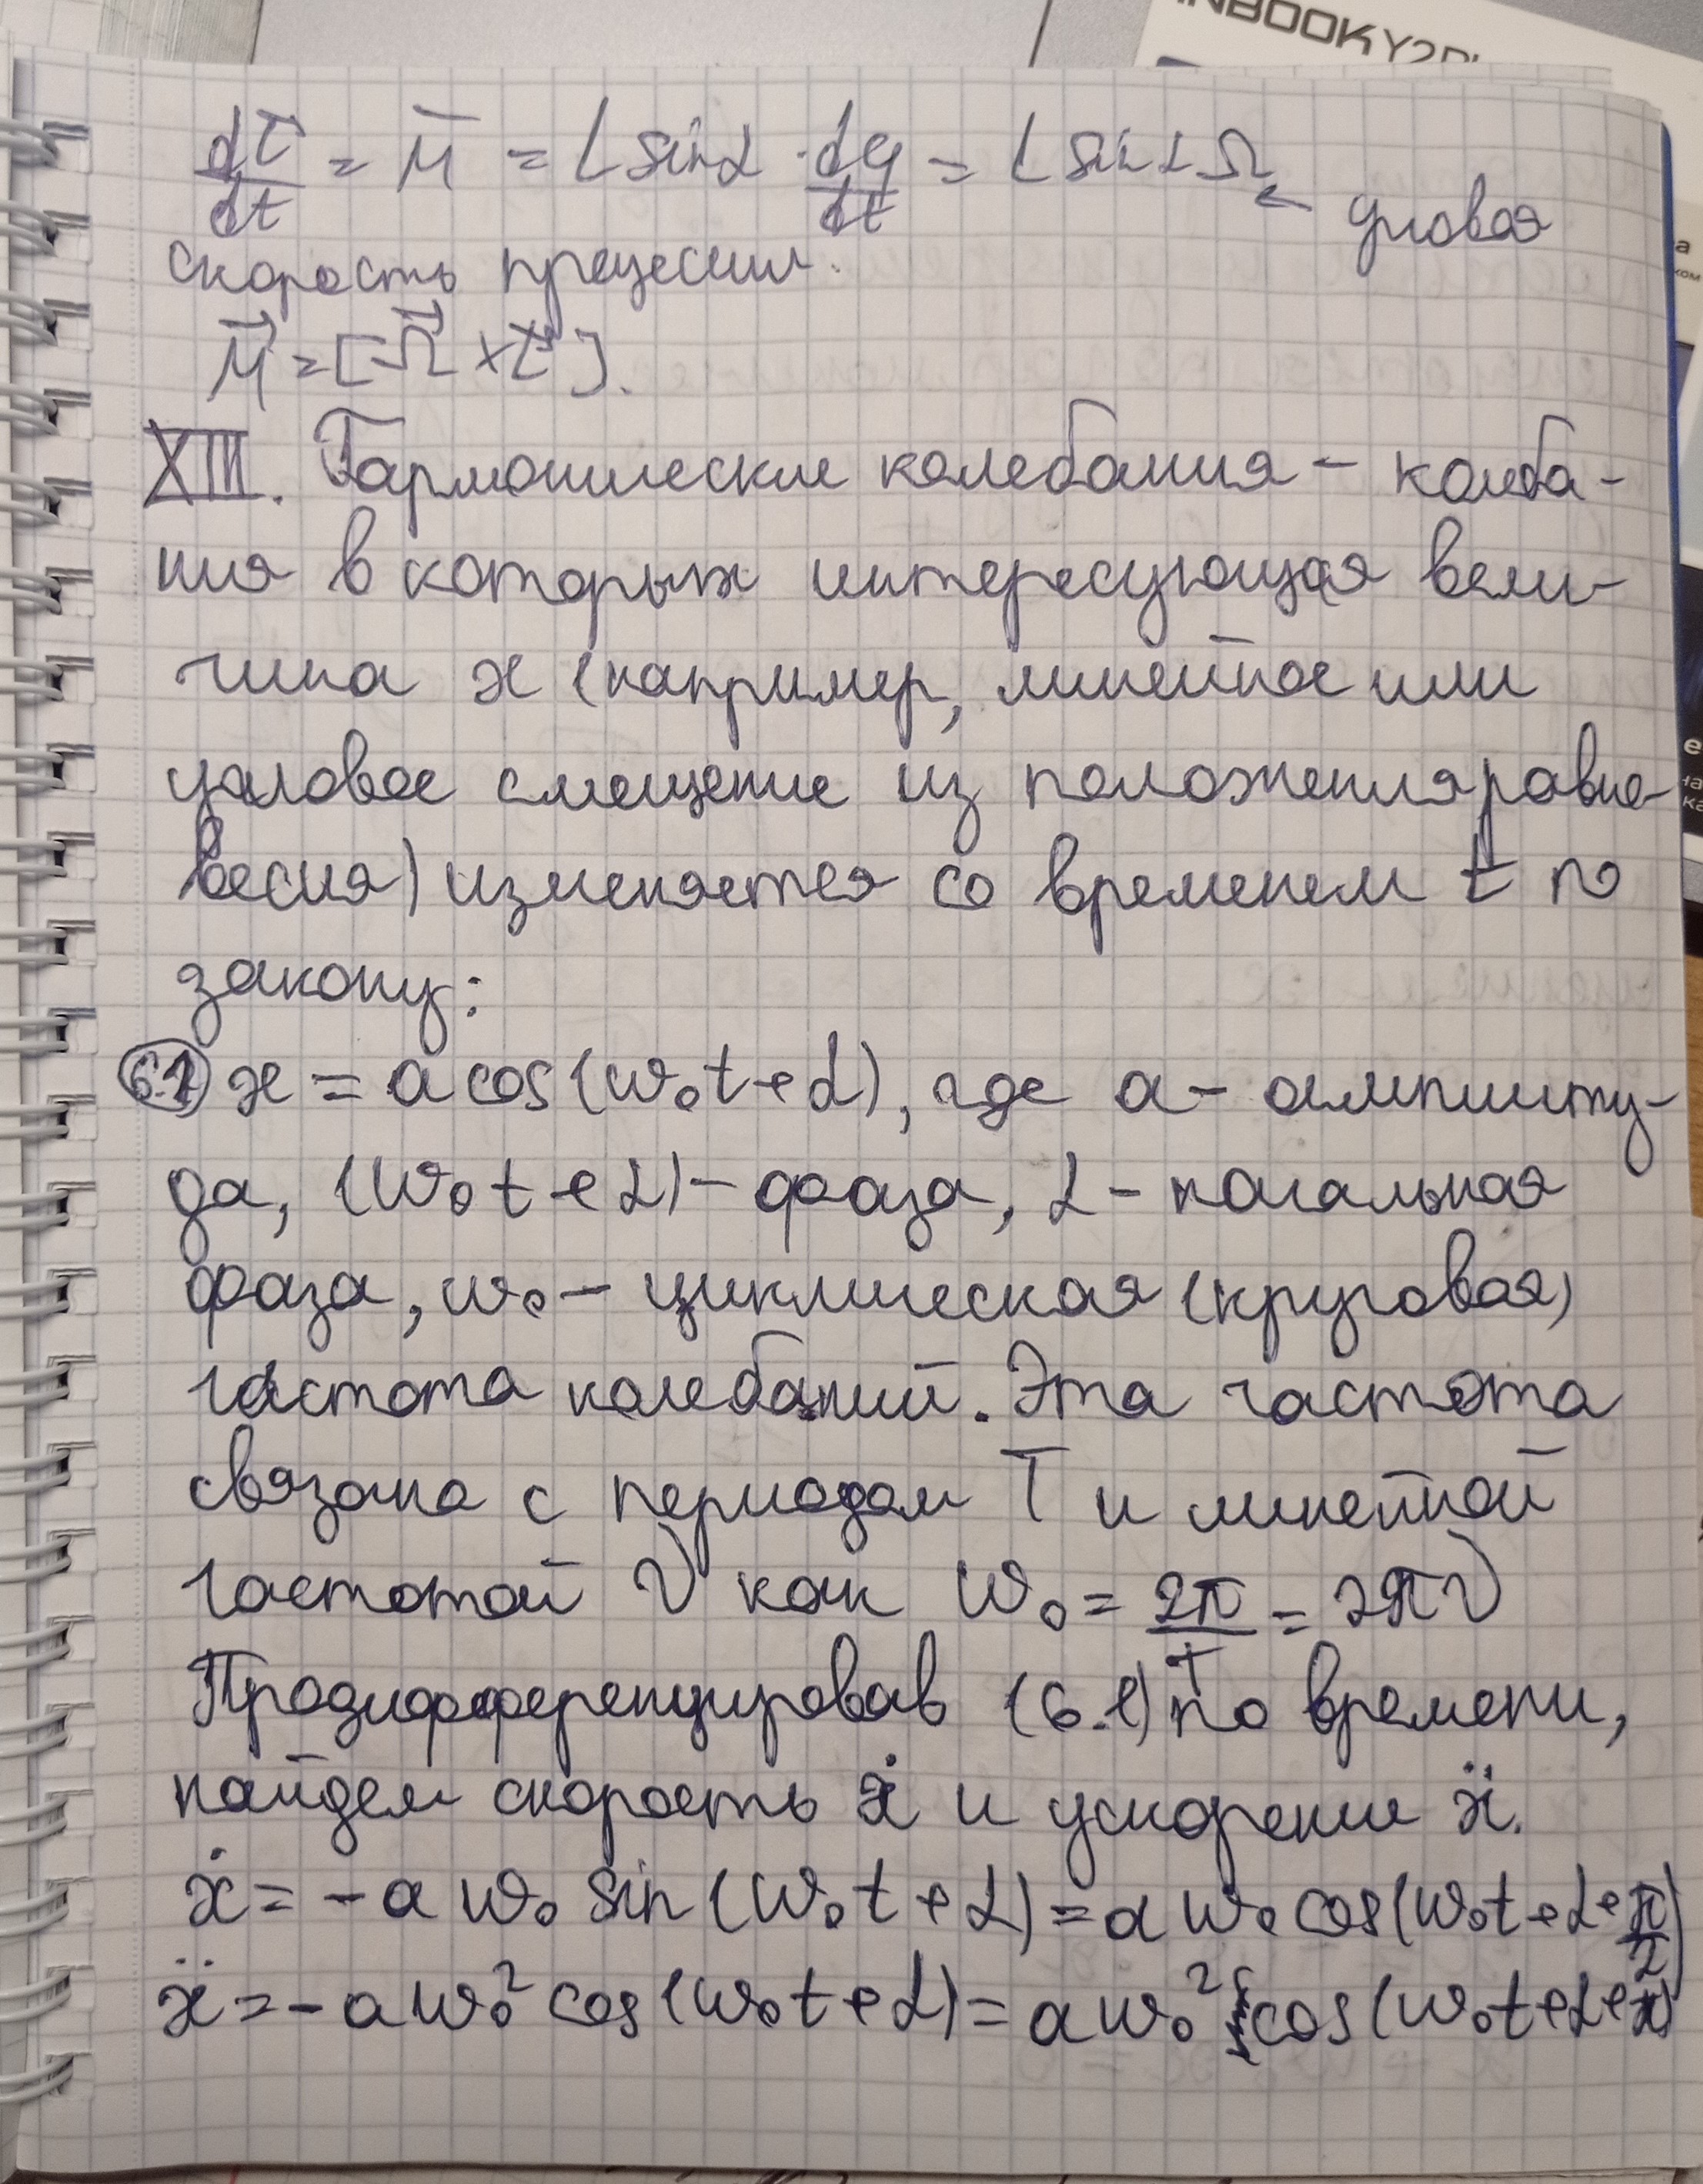 INBOOK Y2PLUS
dL̄/dt = M̄ = L sinα · dφ/dt = L sinα Ω ← угловая
скорость прецессии.
M⃗ = [Ω⃗ × L⃗].
XIII. Гармонические колебания – колеба-
ния в которых интересующая вели-
чина x (например, линейное или
угловое смещение из положения равно-
весия) изменяется со временем t по
закону:
6.1 x = a cos(ω₀t+α), где a – амплиту-
да, (ω₀t+α) – фаза, α – начальная
фаза, ω₀ – циклическая (круговая)
частота колебаний. Эта частота
связана с периодом T и линейной
частотой ν как ω₀ = 2π/T = 2πν
Продифференцировав (6.1) по времени,
найдем скорость ẋ и ускорение ẍ.
ẋ = – a ω₀ sin(ω₀t+α) = a ω₀ cos(ω₀t+α+π/2)
ẍ = – a ω₀² cos(ω₀t+α) = a ω₀² cos(ω₀t+α+π)